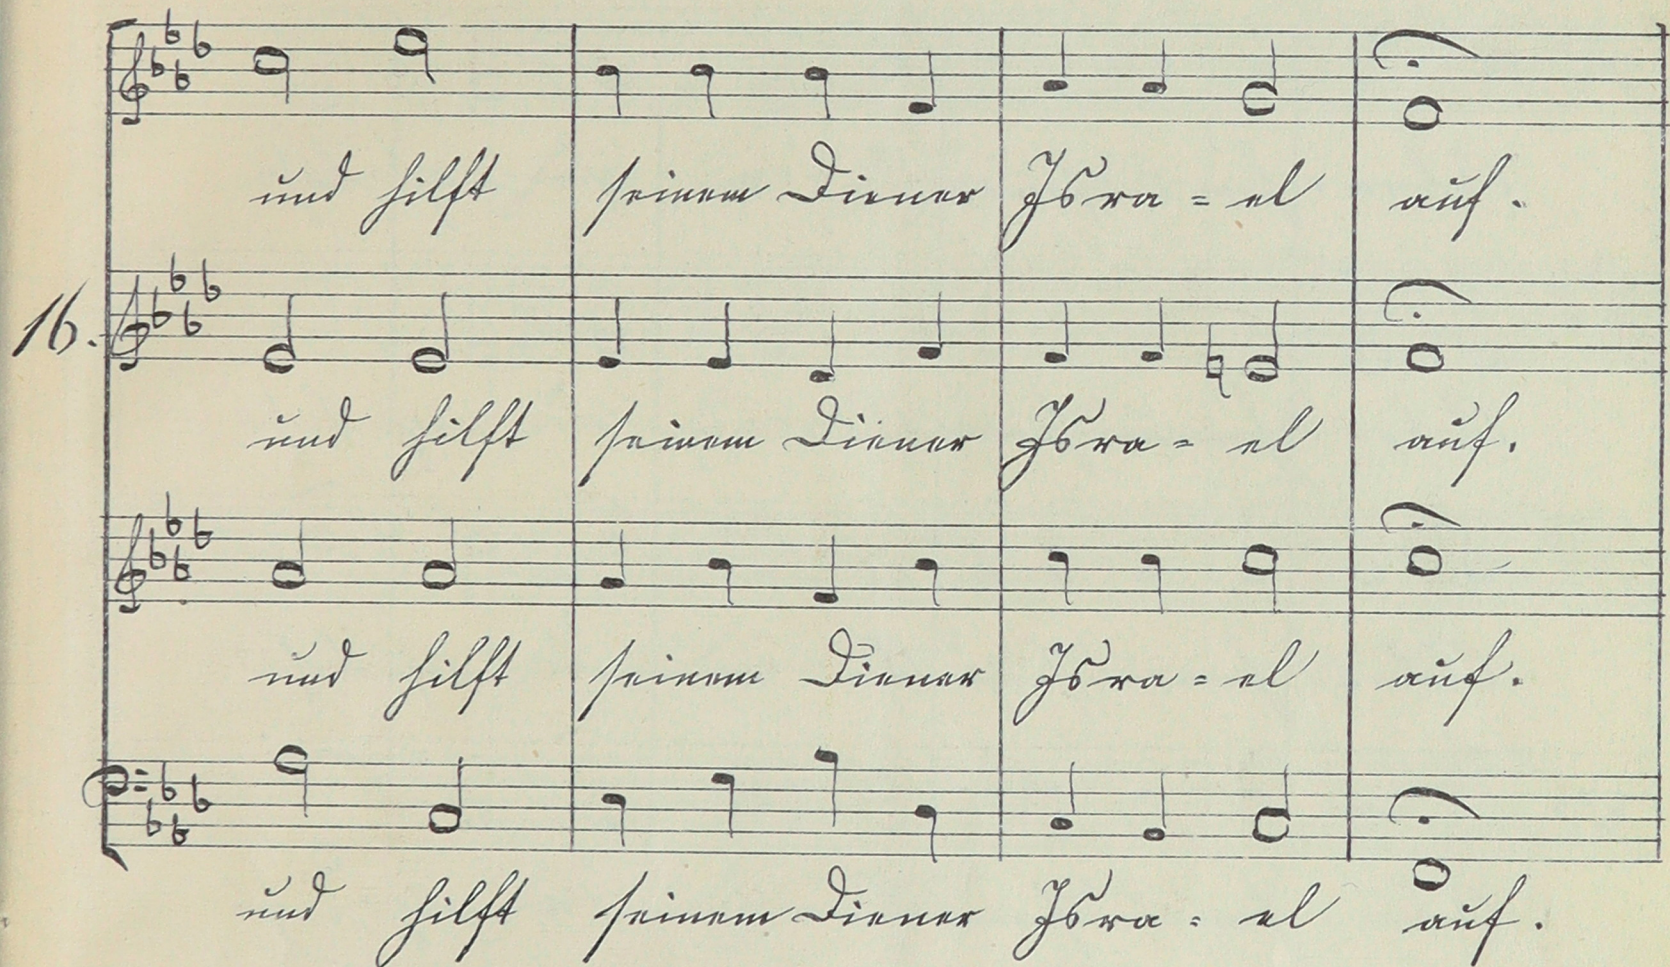 und hilft seinem Diener Isra = el auf.
16.
und hilft seinem Diener Isra = el auf.
und hilft seinem Diener Isra = el auf.
und hilft seinem Diener Isra = el auf.